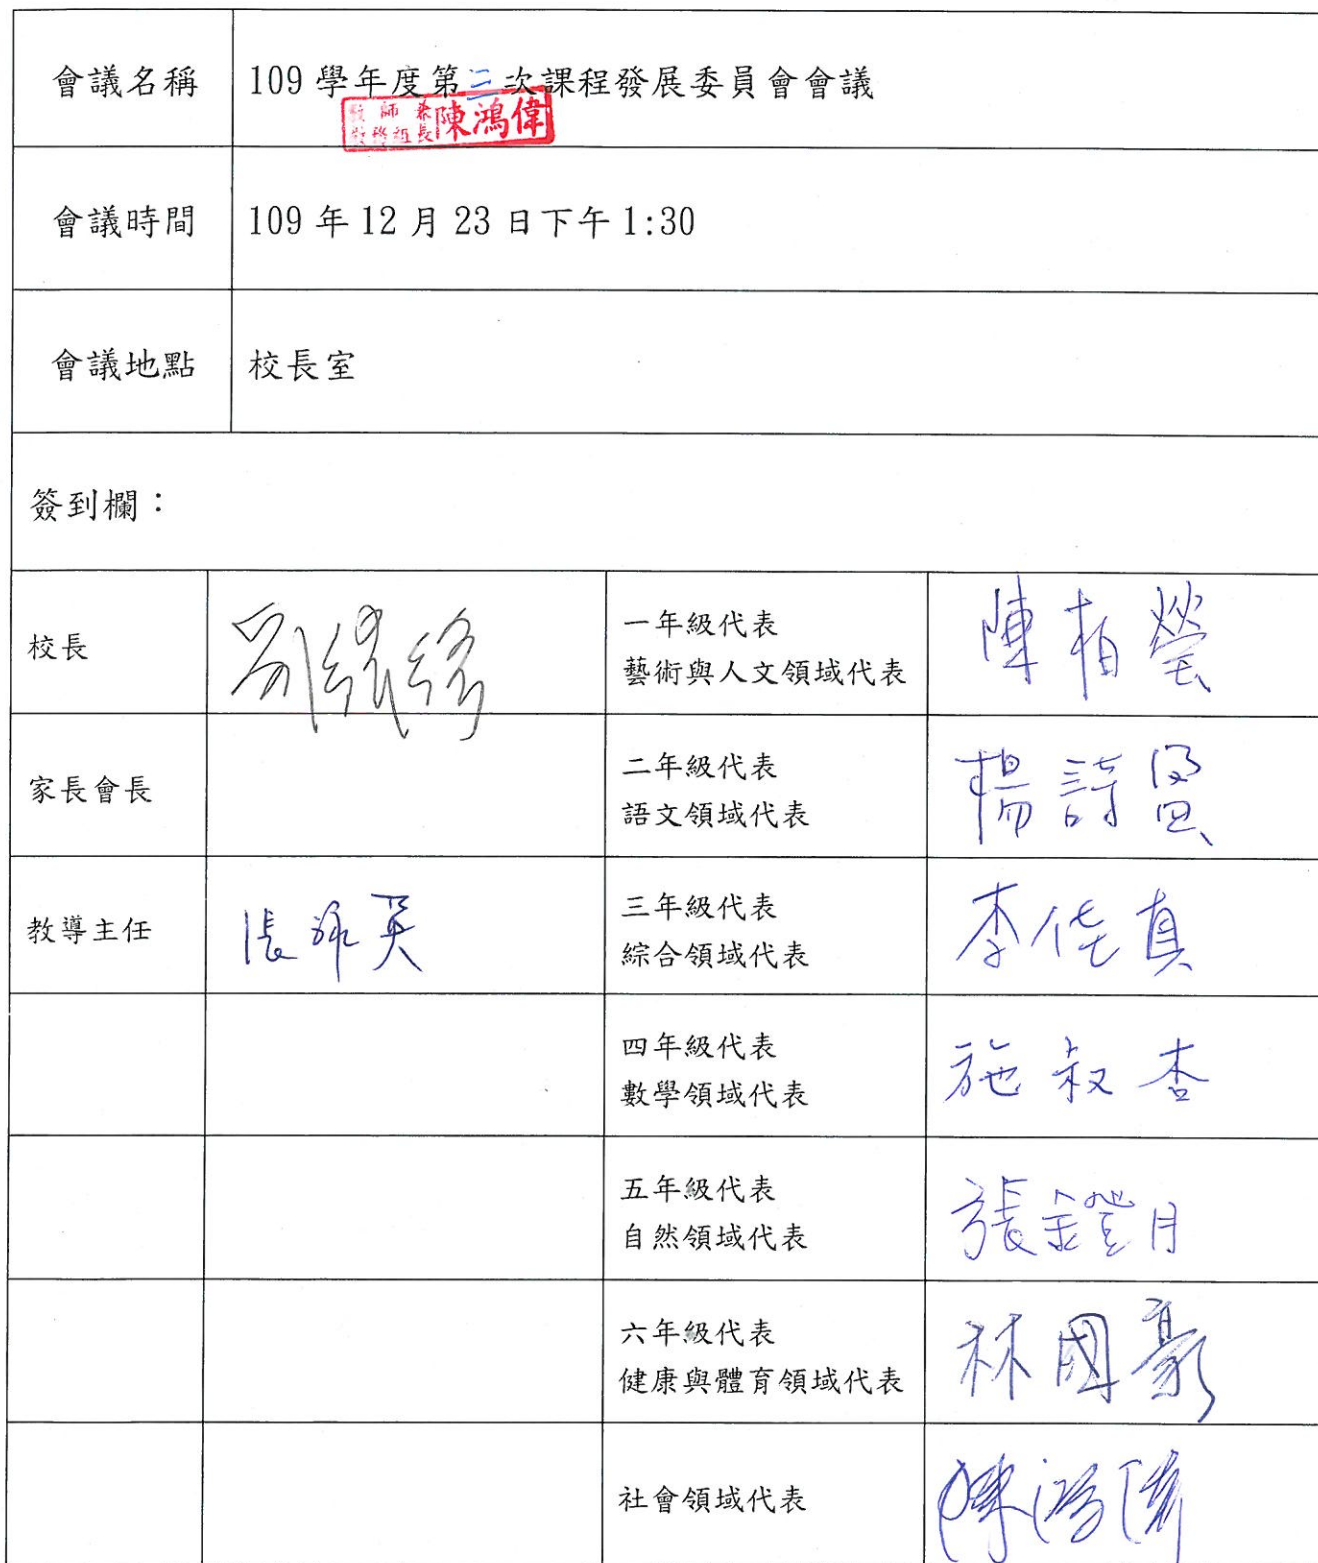 會議名稱
109 學年度第二次課程發展委員會會議
教師兼
教務組長
陳鴻偉
會議時間
109 年 12 月 23 日下午 1:30
會議地點
校長室
簽到欄：
校長
一年級代表
藝術與人文領域代表
陳柏瑩
家長會長
二年級代表
語文領域代表
楊詩
教導主任
張 英
三年級代表
綜合領域代表
李佳真
四年級代表
數學領域代表
施叔杏
五年級代表
自然領域代表
張鐙月
六年級代表
健康與體育領域代表
林國豪
社會領域代表
陳鴻偉